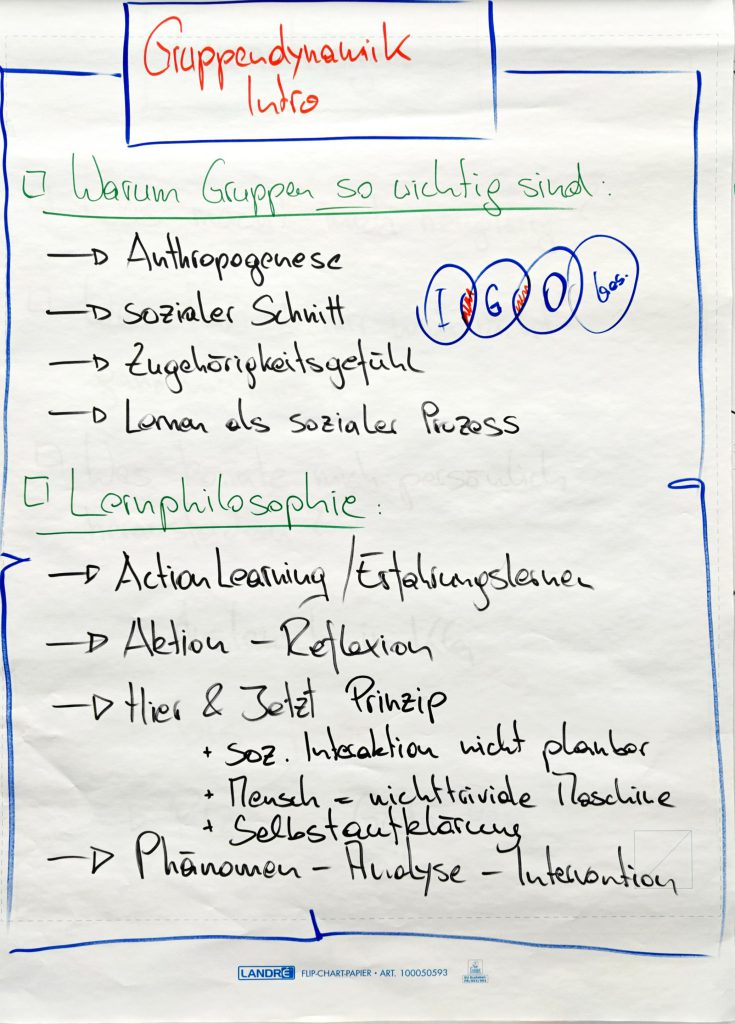 Gruppendynamik
Intro
Warum Gruppen so wichtig sind:
Anthropogenese
sozialer Schnitt
Zugehörigkeitsgefühl
Lernen als sozialer Prozess
I G O Ges.
Lernphilosophie:
Action Learning / Erfahrungslernen
Aktion - Reflexion
Hier & Jetzt Prinzip
+ soz. Interaktion nicht planbar
+ Mensch = nichttriviale Maschine
+ Selbstaufklärung
Phänomen - Analyse - Intervention
LANDRÉ FLIP-CHART-PAPIER • ART. 100050593